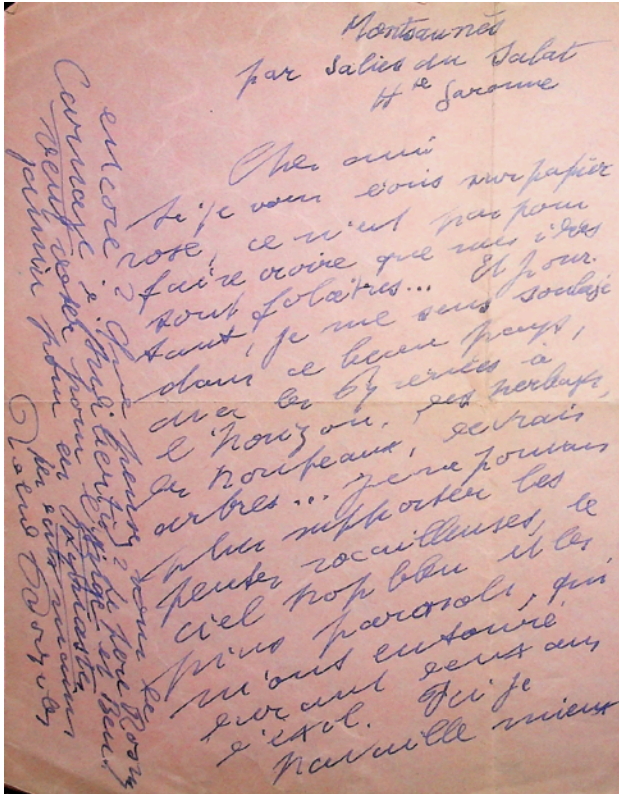 Montsaunès
par Salies du Salat
Hte Garonne
Cher ami
Si je vous écris sur papier
rose, ce n'est pas pour
faire croire que mes idées
sont folâtres... Et pour-
tant, je me sens soulagé
dans ce beau pays,
avec les Pyrénées à
l'horizon, ses herbages,
les troupeaux, de vrais
arbres... Je ne pouvais
plus supporter les
pentes rocailleuses, le
ciel trop bleu et les
pins parasols, qui
m'ont entouré
durant deux ans
d'exil. Ici je
travaille mieux
encore ? Que pensez vous de
Carnage
veut rester pour en
jamais pour